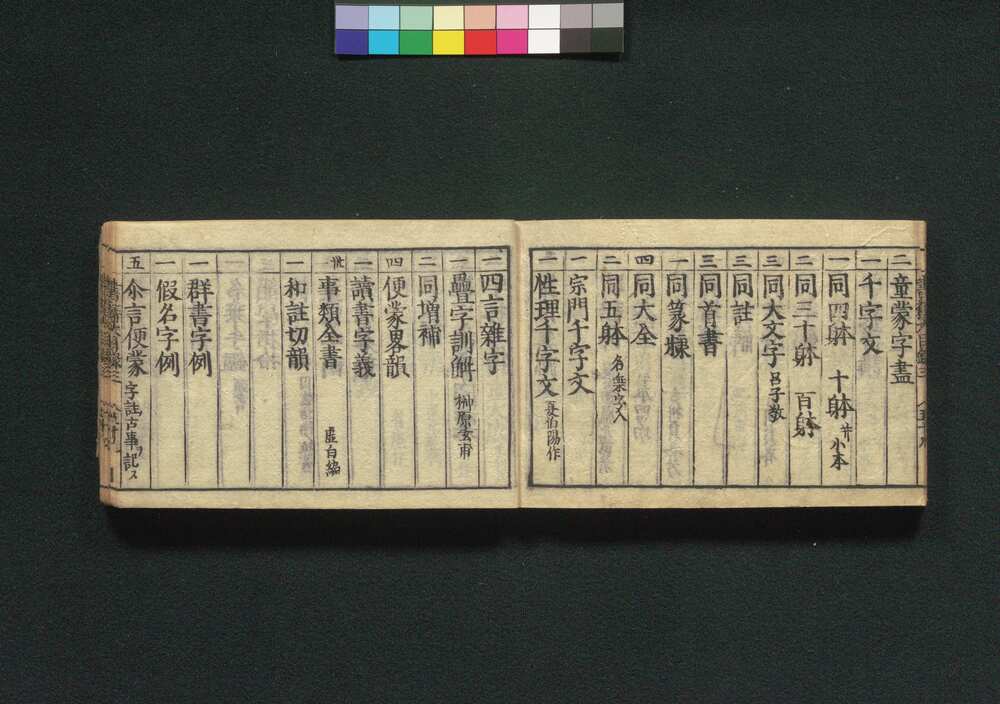 二 童蒙字盡
一 千字文
一 同四躰 十躰 并小本
二 同三十躰 百躰
三 同大文字 呂子教
三 同註
三 同首書
一 同篆隸
四 同大全
二 同五躰
一 宗門千字文
一 性理千字文 夏伯陽作
一 四言雜字
一 疊字訓解 榊原玄甫
二 同増補
四 便蒙畧韻
一 讀書字義
事類全書 虚白編
一 和註切韻
一 群書字例
一 假名字例
五 尒言便蒙 字註古事ヲ記ス